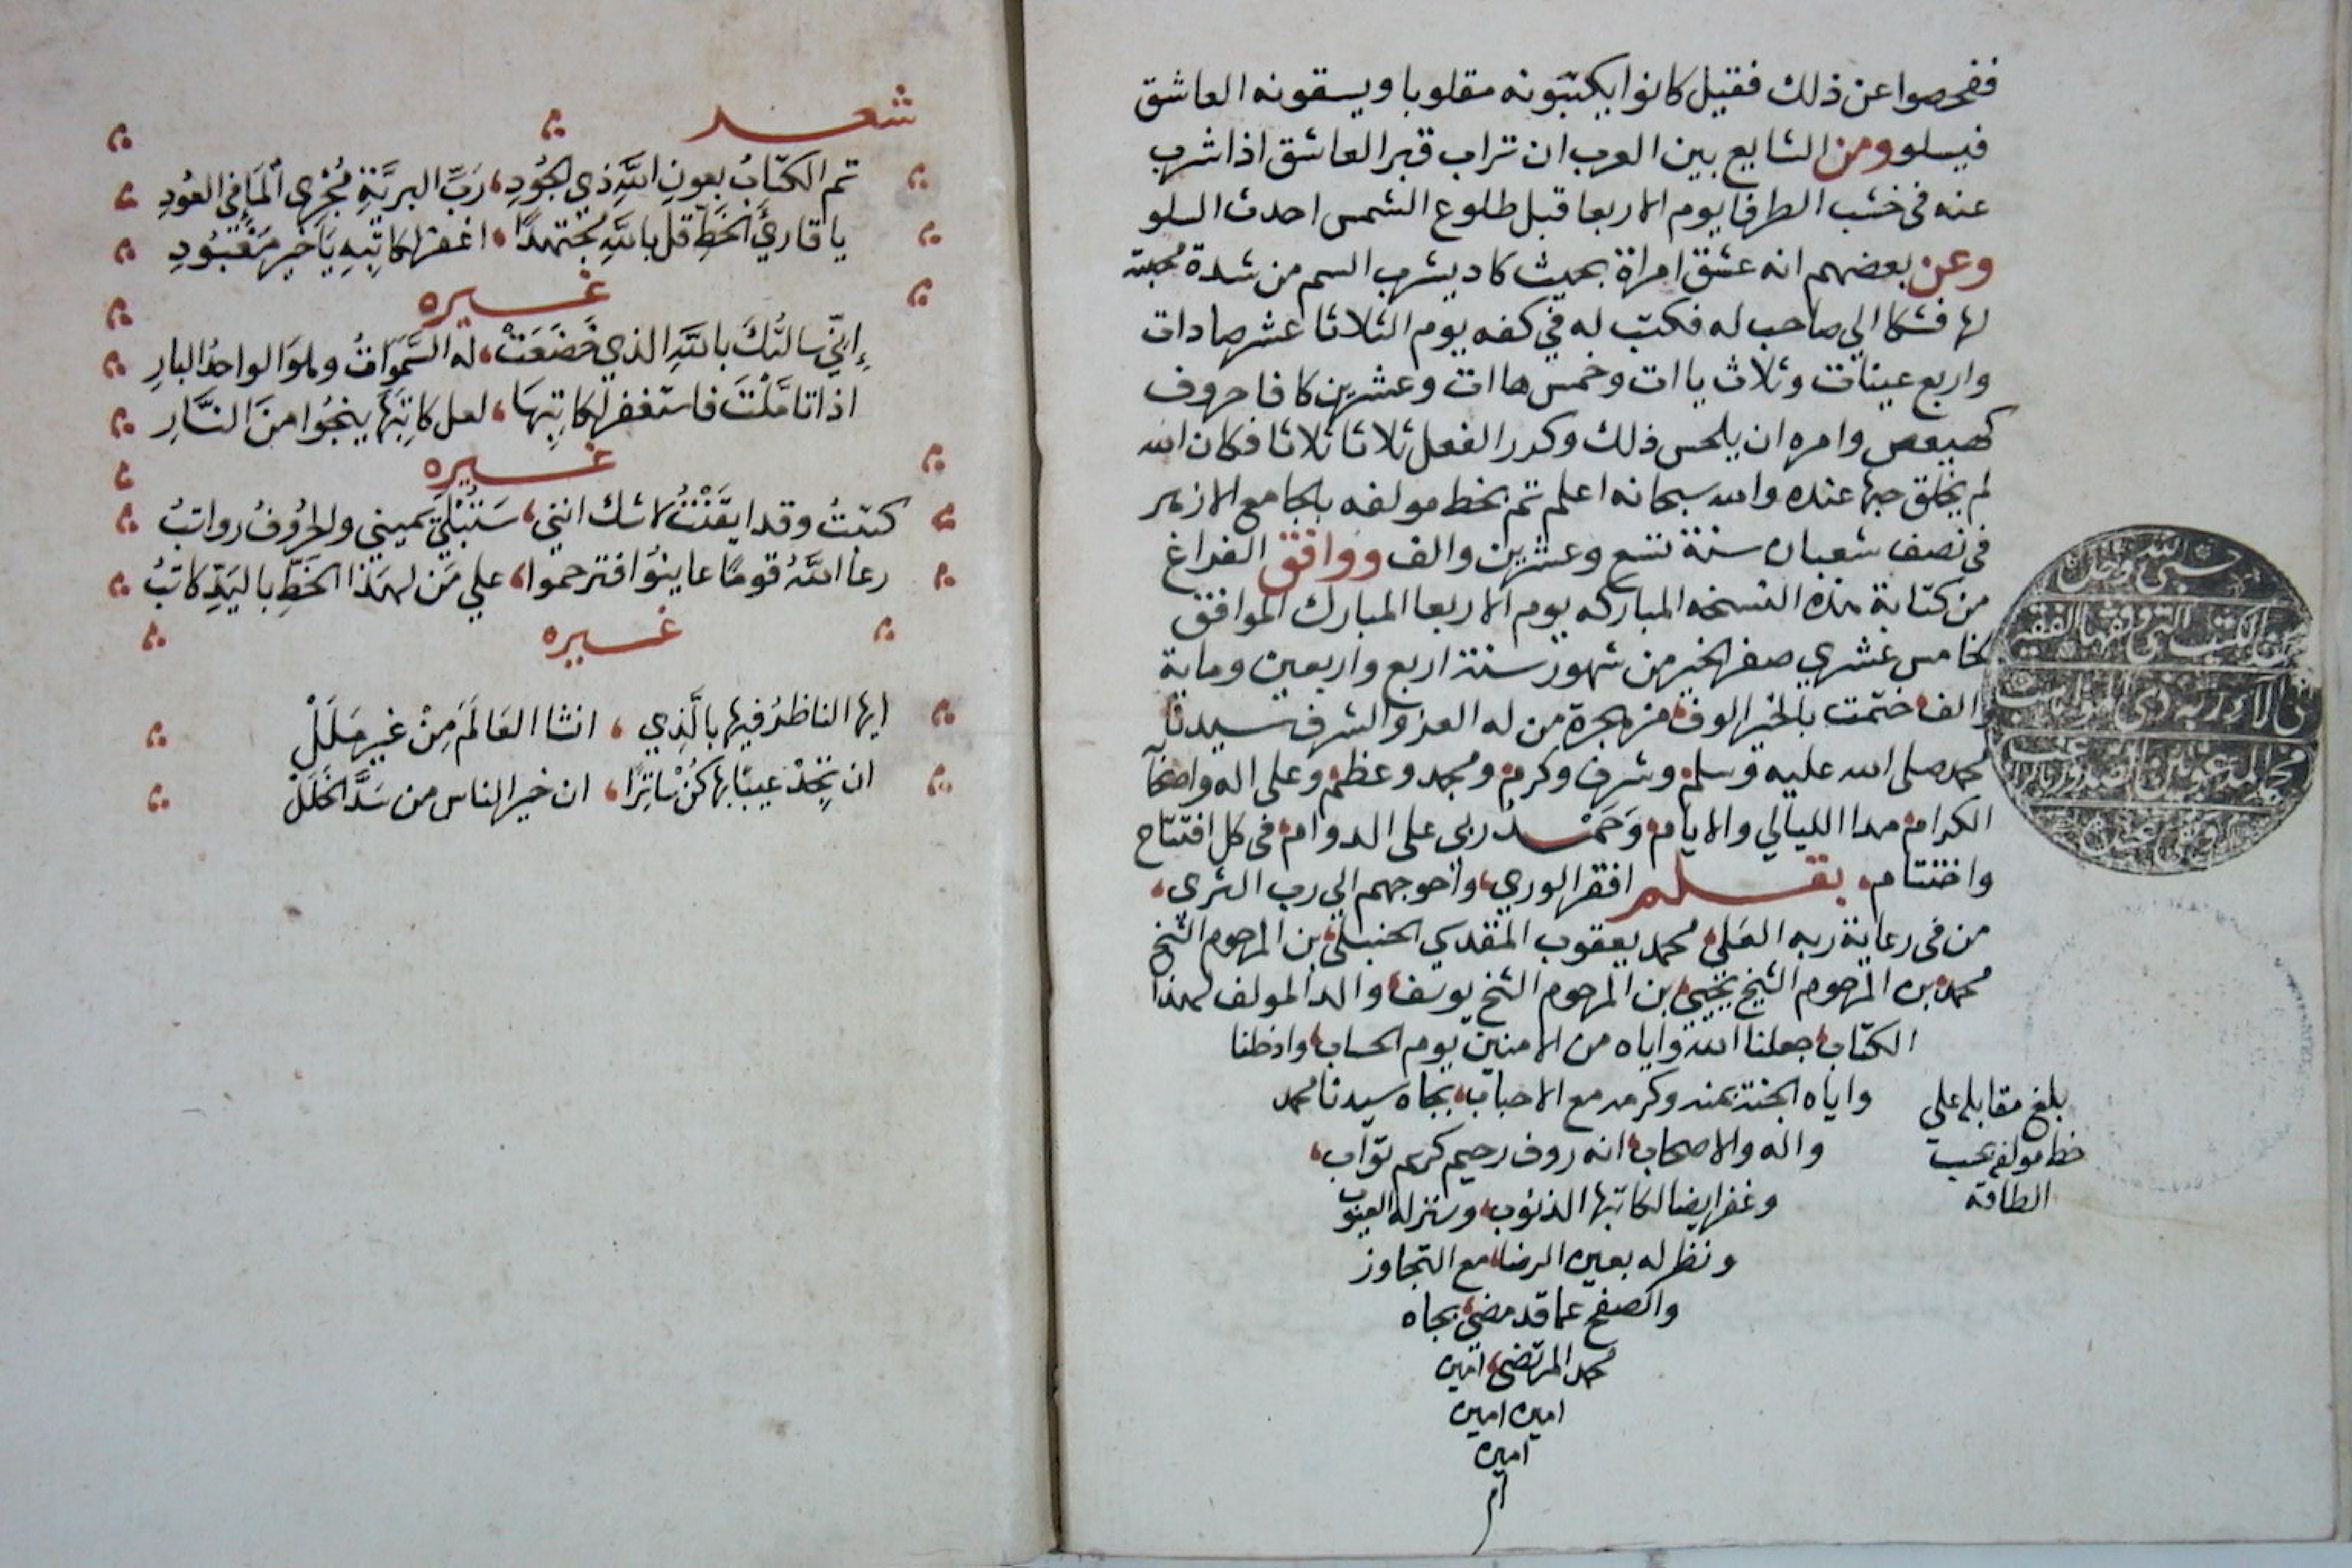 ففحصوا عن ذلك فقيل كانوا يكتبونه مقلوبا ويسقونه العاشق
فيسلو ومن الشايع بين العرب ان تراب قبر العاشق اذا شرب
عنه في خشب الطرفا يوم الاربعا قبل طلوع الشمس احدث السلو
وعن بعضهم انه عشق امراة بحيث كاد يشرب السم من شدة محبته
لها فشكا الي صاحب له فكتب له في كفه يوم الثلاثا عشر صادات
واربع عينات وثلاث ياات وخمس هاات وعشرين كافا حروف
كهيعص وامره ان يلحس ذلك وكرر الفعل ثلاثا ثلاثا فكان الله
لم يخلق حبها عنده والله سبحانه اعلم تم بخط مولفه بالجامع الازهر
في نصف شعبان سنة تسع وعشرين والف ووافق الفراغ
من كتابة هذه النسخه المباركه يوم الاربعا المبارك الموافق
لخامس عشري صفر الخير من شهور سنة اربع واربعين وماية
والف ختمت بالخير الوف من هجرة من له العز والشرف سيدنا
محمد صلى الله عليه وسلم وشرف وكرم ومجد وعظم وعلى اله واصحابه
الكرام مدا الليالي والايام وحمد ربي على الدوام في كل افتتاح
واختتام بقلم افقر الوري، واحوجهم الى رب الثرى،
من في رعاية ربه العلي محمد يعقوب المقدسي الحنبلي بن المرحوم الشيخ
محمد بن المرحوم الشيخ يحيى بن المرحوم الشيخ يوسف والد المولف لهذا
الكتاب جعلنا الله واياه من الامنين يوم الحساب وادخلنا
واياه الجنة بمنه وكرمه مع الاحباب بجاه سيدنا محمد
واله والاصحاب انه روف رحيم كريم تواب،
وغفر ايضا لكاتبها الذنوب، وستر له العيوب
ونظر له بعين الرضا مع التجاوز
والصفح عما قد مضى بجاه
محمد المرتضى، امين
امين امين
امين
ام
بلغ مقابله على
خط مولفه بحسب
الطاقه
حسبي الله وحده
من الكتب التي وقفها الفقير
شعر
تم الكتابُ بعونِ اللهِ ذي الجُودِ، رَبِّ البريَّةِ مُجْرِي الْمَا في العُودِ
يا قاريَ الخَطِّ قل باللهِ مُجتهدًا، اغفر لكاتِبِهِ يَا خيرَ مَعْبُودِ
غيره
إِنّي سالتُكَ باللهِ الذي خَضَعَتْ، له السَّمَوَاتُ وهْوَ الواحدُ البارِ
اذا تامَّلْتَ فاستغفر لكاتِبِهَا، لعل كاتِبَهَا ينجُوا منَ النَّارِ
غيره
كتبتُ وقد ايقَنْتُ لا شك انني، سَتُبْلَى يَميني والحُرُوفُ رواتبُ
رعا اللَّهُ قومًا عاينوُا فترحموا، علي مَن لهَذا الخَطِّ باليَدِّ كاتبُ
غيره
ايها الناظرُ فيها بالَّذِي، انشا العَالَمَ مِنْ غيرِ مَلَلْ
ان تجِدْ عيبًا بها كُنْ ساتِرًا، ان خير الناس من سَدَّ الخَلَلْ